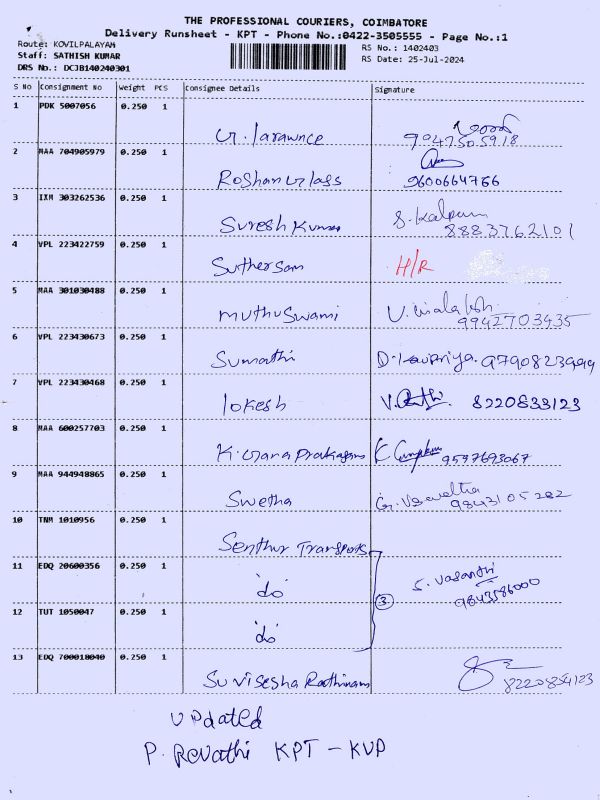 THE PROFESSIONAL COURIERS, COIMBATORE
Delivery Runsheet - KPT - Phone No.:0422-3505555 - Page No.:1
Route: KOVILPALAYAM
RS No.: 1402403
Staff: SATHISH KUMAR
RS Date: 25-Jul-2024
DRS No.: DCJB140240301
S No Consignment No Weight PCS Consignee Details Signature
1 PDK 5007056 0.250 1
G. larawnce 9047505918
2 MAA 704905979 0.250 1
Roshan Glass 9600664766
3 IXM 303262536 0.250 1
Suresh Kumar S. Kalpana
8883762101
4 VPL 223422759 0.250 1
Suthersan H/R
5 MAA 301030488 0.250 1
muthuswami
9942703435
6 VPL 223430673 0.250 1
Sumathi D. 9790823999
7 VPL 223430468 0.250 1
lokesh V. 8220833123
8 MAA 600257703 0.250 1
K. Gnana Prakasam K 9597693067
9 MAA 944948865 0.250 1
Swetha G. 9843105282
10 TNM 1010956 0.250 1
Senthur Transports
11 EDQ 20600356 0.250 1
"do" S. Vasanthi
3 9843586000
12 TUT 1050047 0.250 1
"do"
13 EDQ 700018040 0.250 1
Suvisesha Rathinam 8220834123
Updated
P. Revathi KPT - KVP